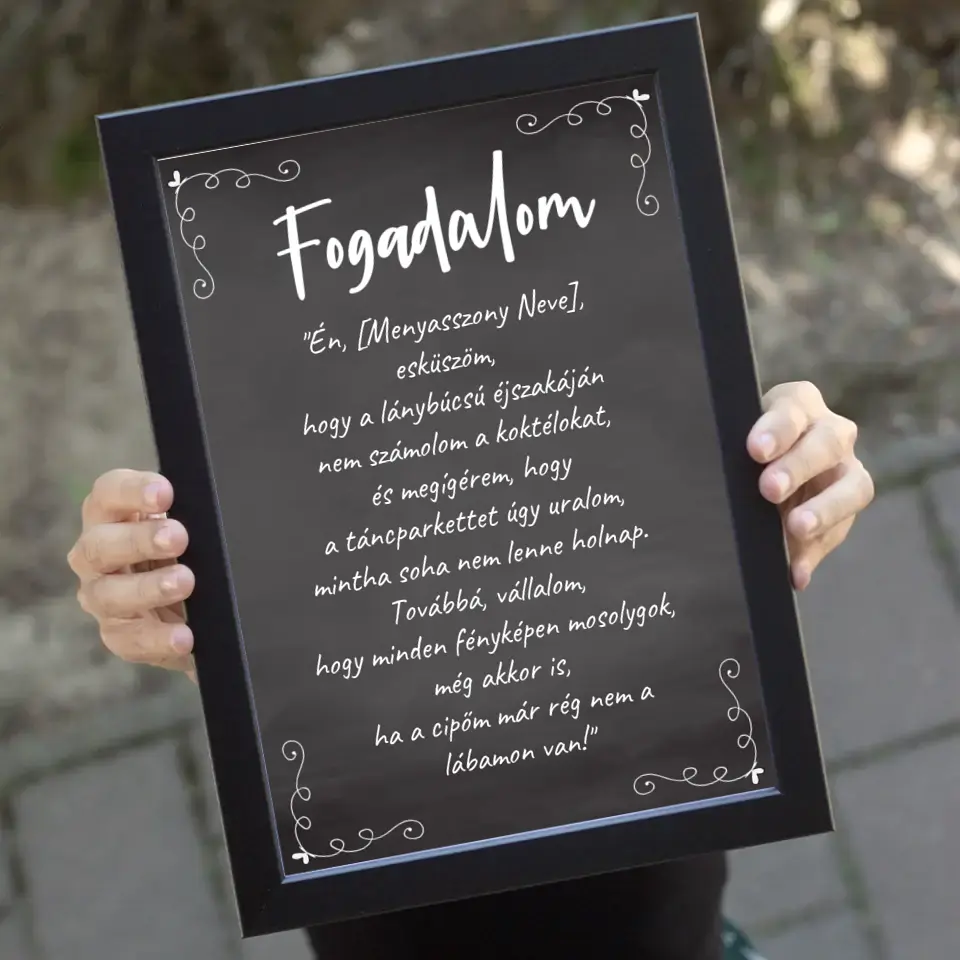 Fogadalom
"Én, [Menyasszony Neve],
esküszöm,
hogy a lánybúcsú éjszakáján
nem számolom a koktélokat,
és megígérem, hogy
a táncparkettet úgy uralom,
mintha soha nem lenne holnap.
Továbbá, vállalom,
hogy minden fényképen mosolygok,
még akkor is,
ha a cipőm már rég nem a
lábamon van!"